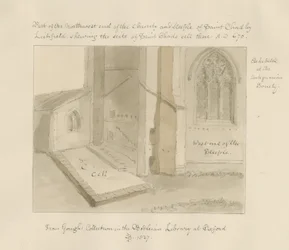 Part of the Southwest end of the Church and Chapel of Saint Chad by
Lichfield shewing the site of Saint Chads cell there A.D. 670.
Exhibited
at the
Antiquarian
Society
Cell
West end of the
Chapel
From Gough's Collection in the Bodleian Library at Oxford